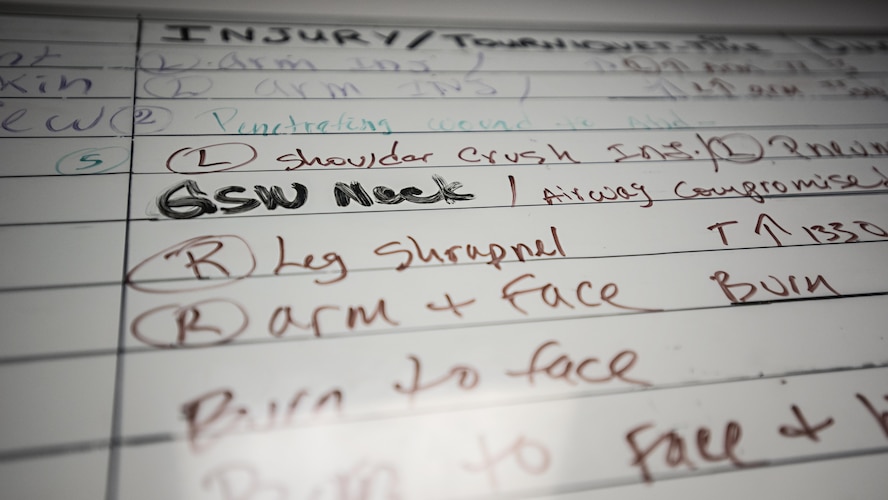 INJURY/TOURNIQUET TIME
(L) arm Inj /
kin (L) arm INJ /
ew (2) Penetrating wound to Abd -
(5) (L) Shoulder Crush Inj./(L) Pneum
GSW Neck / Airway Compromised
(R) Leg Shrapnel T↑1330
(R) arm + Face Burn
Burn to face
Burn to Face +